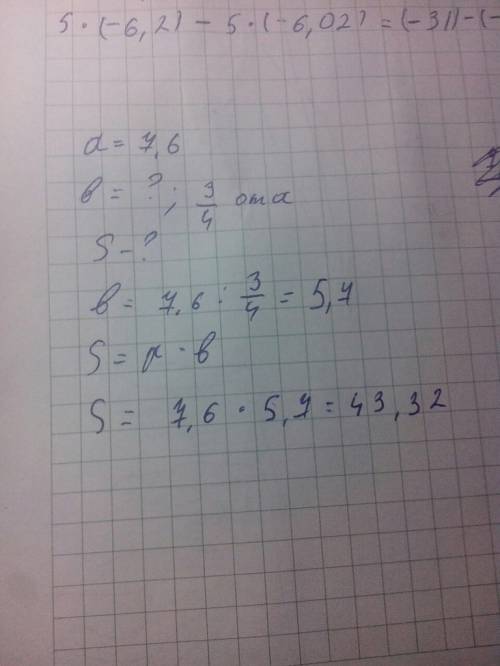 5 · (-6,2) - 5 · (-6,02) = (-31) - (-
a = 7,6
b = ?; 3/4 от a
S - ?
b = 7,6 · 3/4 = 5,7
S = a · b
S = 7,6 · 5,7 = 43,32